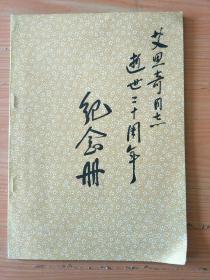 艾思奇同志
逝世二十周年
纪念册